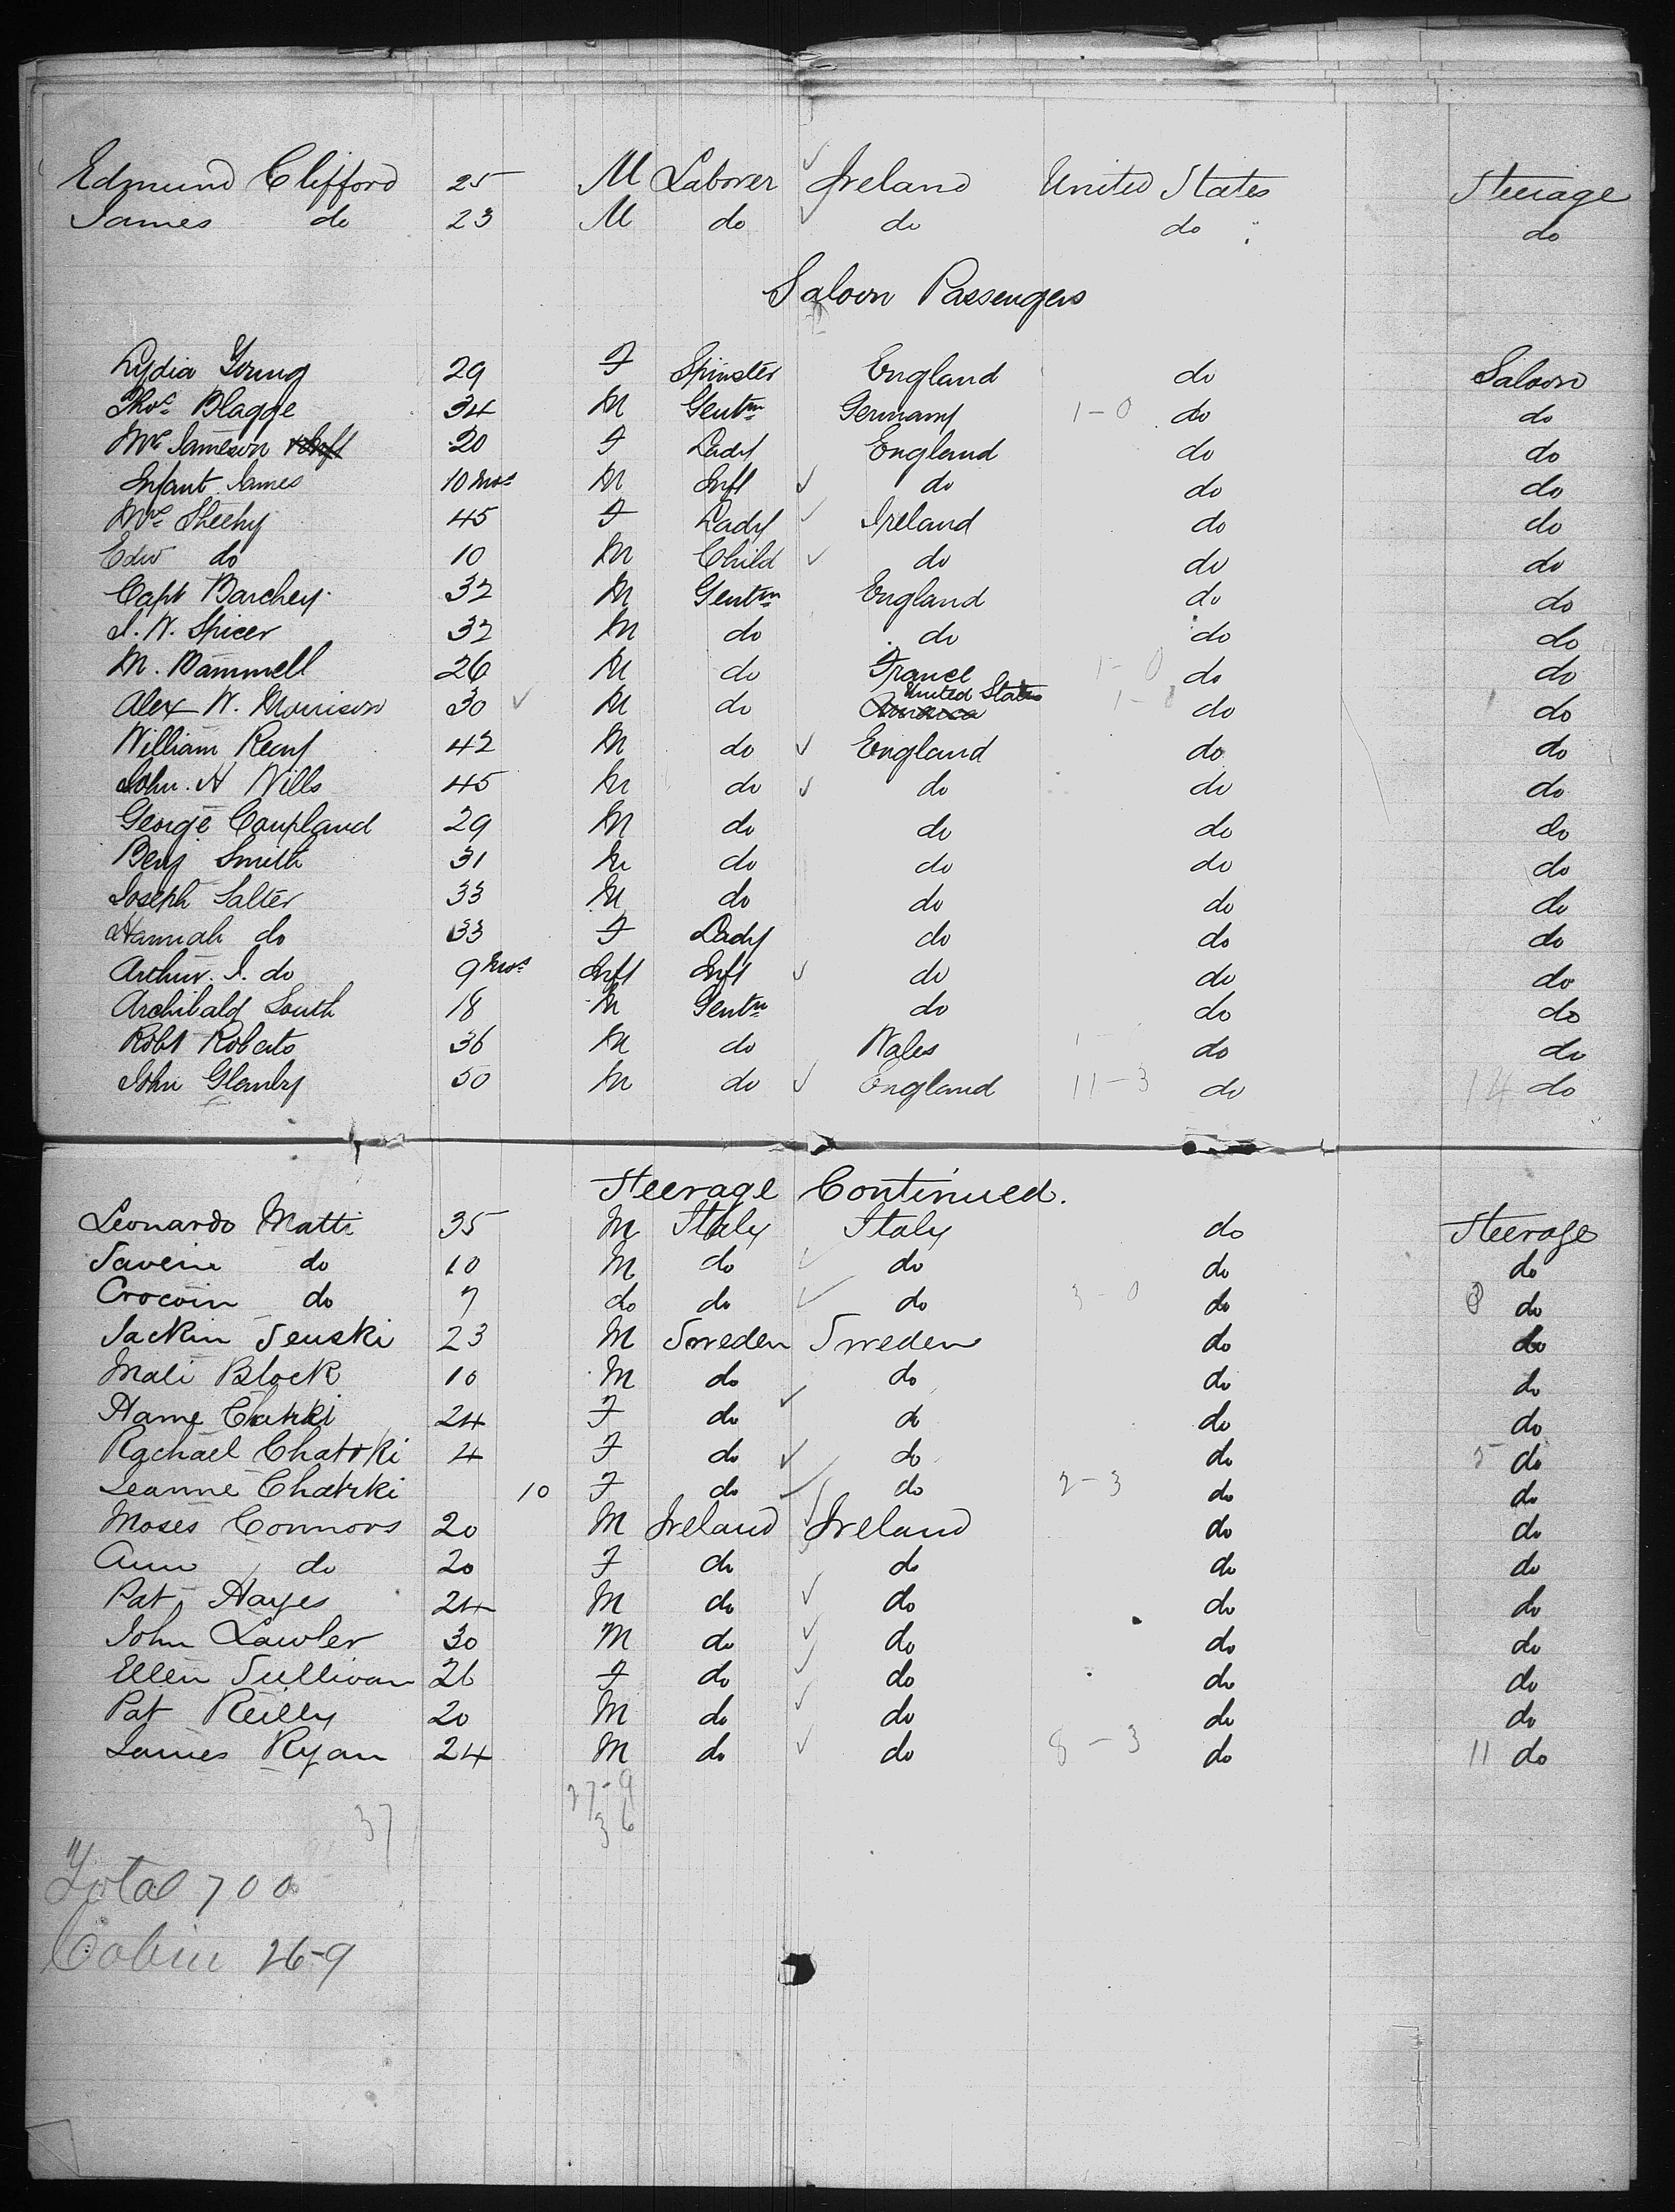 Edmund Clifford 25 M Laborer Ireland United States Steerage
James do 23 M do do do do
Saloon Passengers
Lydia Young 29 F Spinster England do Saloon
Thos Blagge 34 M Gentm Germany 1-0 do do
Mrs Jameson 20 F Lady England do do
Infant James 10 mos M Inft do do do
Mrs Sheehy 45 F Lady Ireland do do
Edw do 10 M Child do do do
Capt Barchey 32 M Gentm England do do
J. W. Spicer 32 M do do do do
M. Bammell 26 M do France 1-0 do do
Alex W. Morrison 30 M do United States do do
William Keay 42 M do England do do
John. H Wills 45 M do do do do
George Coupland 29 M do do do do
Benj Smith 31 M do do do do
Joseph Salter 33 M do do do do
Hannah do 33 F Lady do do do
Arthur. J. do 9 mos Inft Inft do do do
Archibald South 18 M Gentm do do do
Robt Roberts 36 M do Wales do do
John Glemby 50 M do England 11-3 do 14 do
Steerage Continued.
Leonardo Matti 35 M Italy Italy do Steerage
Saverin do 10 M do do do do
Crocoin do 7 do do do 3-0 do 3 do
Jackin Senski 23 M Sweden Sweden do do
Mali Block 10 M do do do do
Hame Chatzki 24 F do do do do
Rachael Chatzki 4 F do do do 5 do
Leanne Chatzki 10 F do do 2-3 do do
Moses Connors 20 M Ireland Ireland do do
Ann do 20 F do do do do
Pat Hayes 24 M do do do do
John Lawler 30 M do do do do
Ellen Sullivan 26 F do do do do
Pat Reilly 20 M do do do do
James Ryan 24 M do do 8-3 do 11 do
27-9
37 36
Total 700
Cabin 26-9